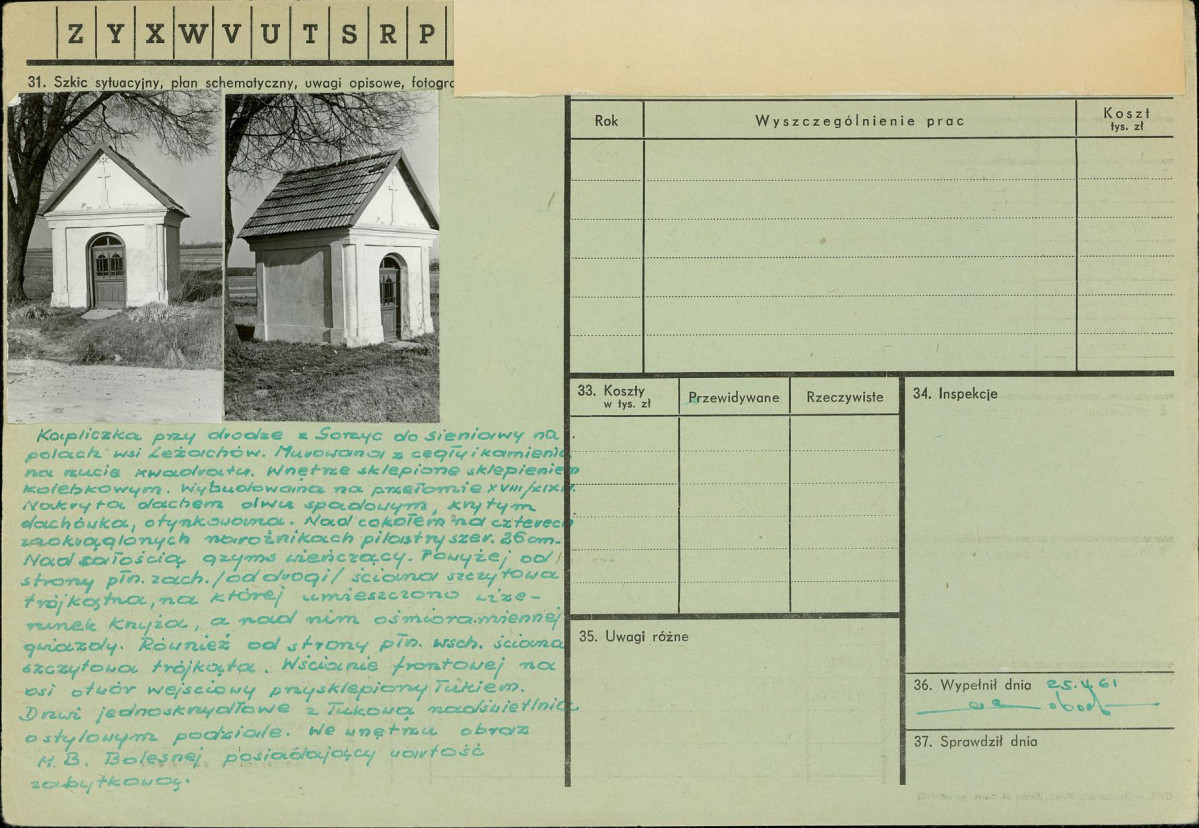 Z Y X W V U T S R P
31. Szkic sytuacyjny, plan schematyczny, uwagi opisowe, fotogra
Rok
Wyszczególnienie prac
Koszt
tys. zł
33. Koszty
w tys. zł
Przewidywane
Rzeczywiste
34. Inspekcje
Kapliczka przy drodze z Gorzyc do Sieniawy na
polach wsi Leżachów. Murowana z cegły i kamienia
na rzucie kwadratu. Wnętrze sklepione sklepieniem
kolebkowym. Wybudowana na przełomie XVIII/XIX w.
Nakryta dachem dwu spadowym, krytym
dachówka, otynkowana. Nad cokołem na czterech
zaokrąglonych narożnikach pilastry szer. 26 cm.
Nad całością gzyms wieńczący. Powyżej od
strony płn. zach. /od drogi/ ściana szczytowa
trójkątna, na której umieszczono wize-
runek krzyża, a nad nim ośmioramiennej
gwiazdy. Również od strony płn. wsch. ściana
szczytowa trójkąta. W ścianie frontowej na
osi otwór wejściowy przysklepiony łukiem.
Drzwi jednoskrzydłowe z łukową nadświetlnią
o stylowym podziale. We wnętrzu obraz
M. B. Bolesnej posiadający wartość
zabytkową.
35. Uwagi różne
36. Wypełnił dnia 25.V.61
37. Sprawdził dnia